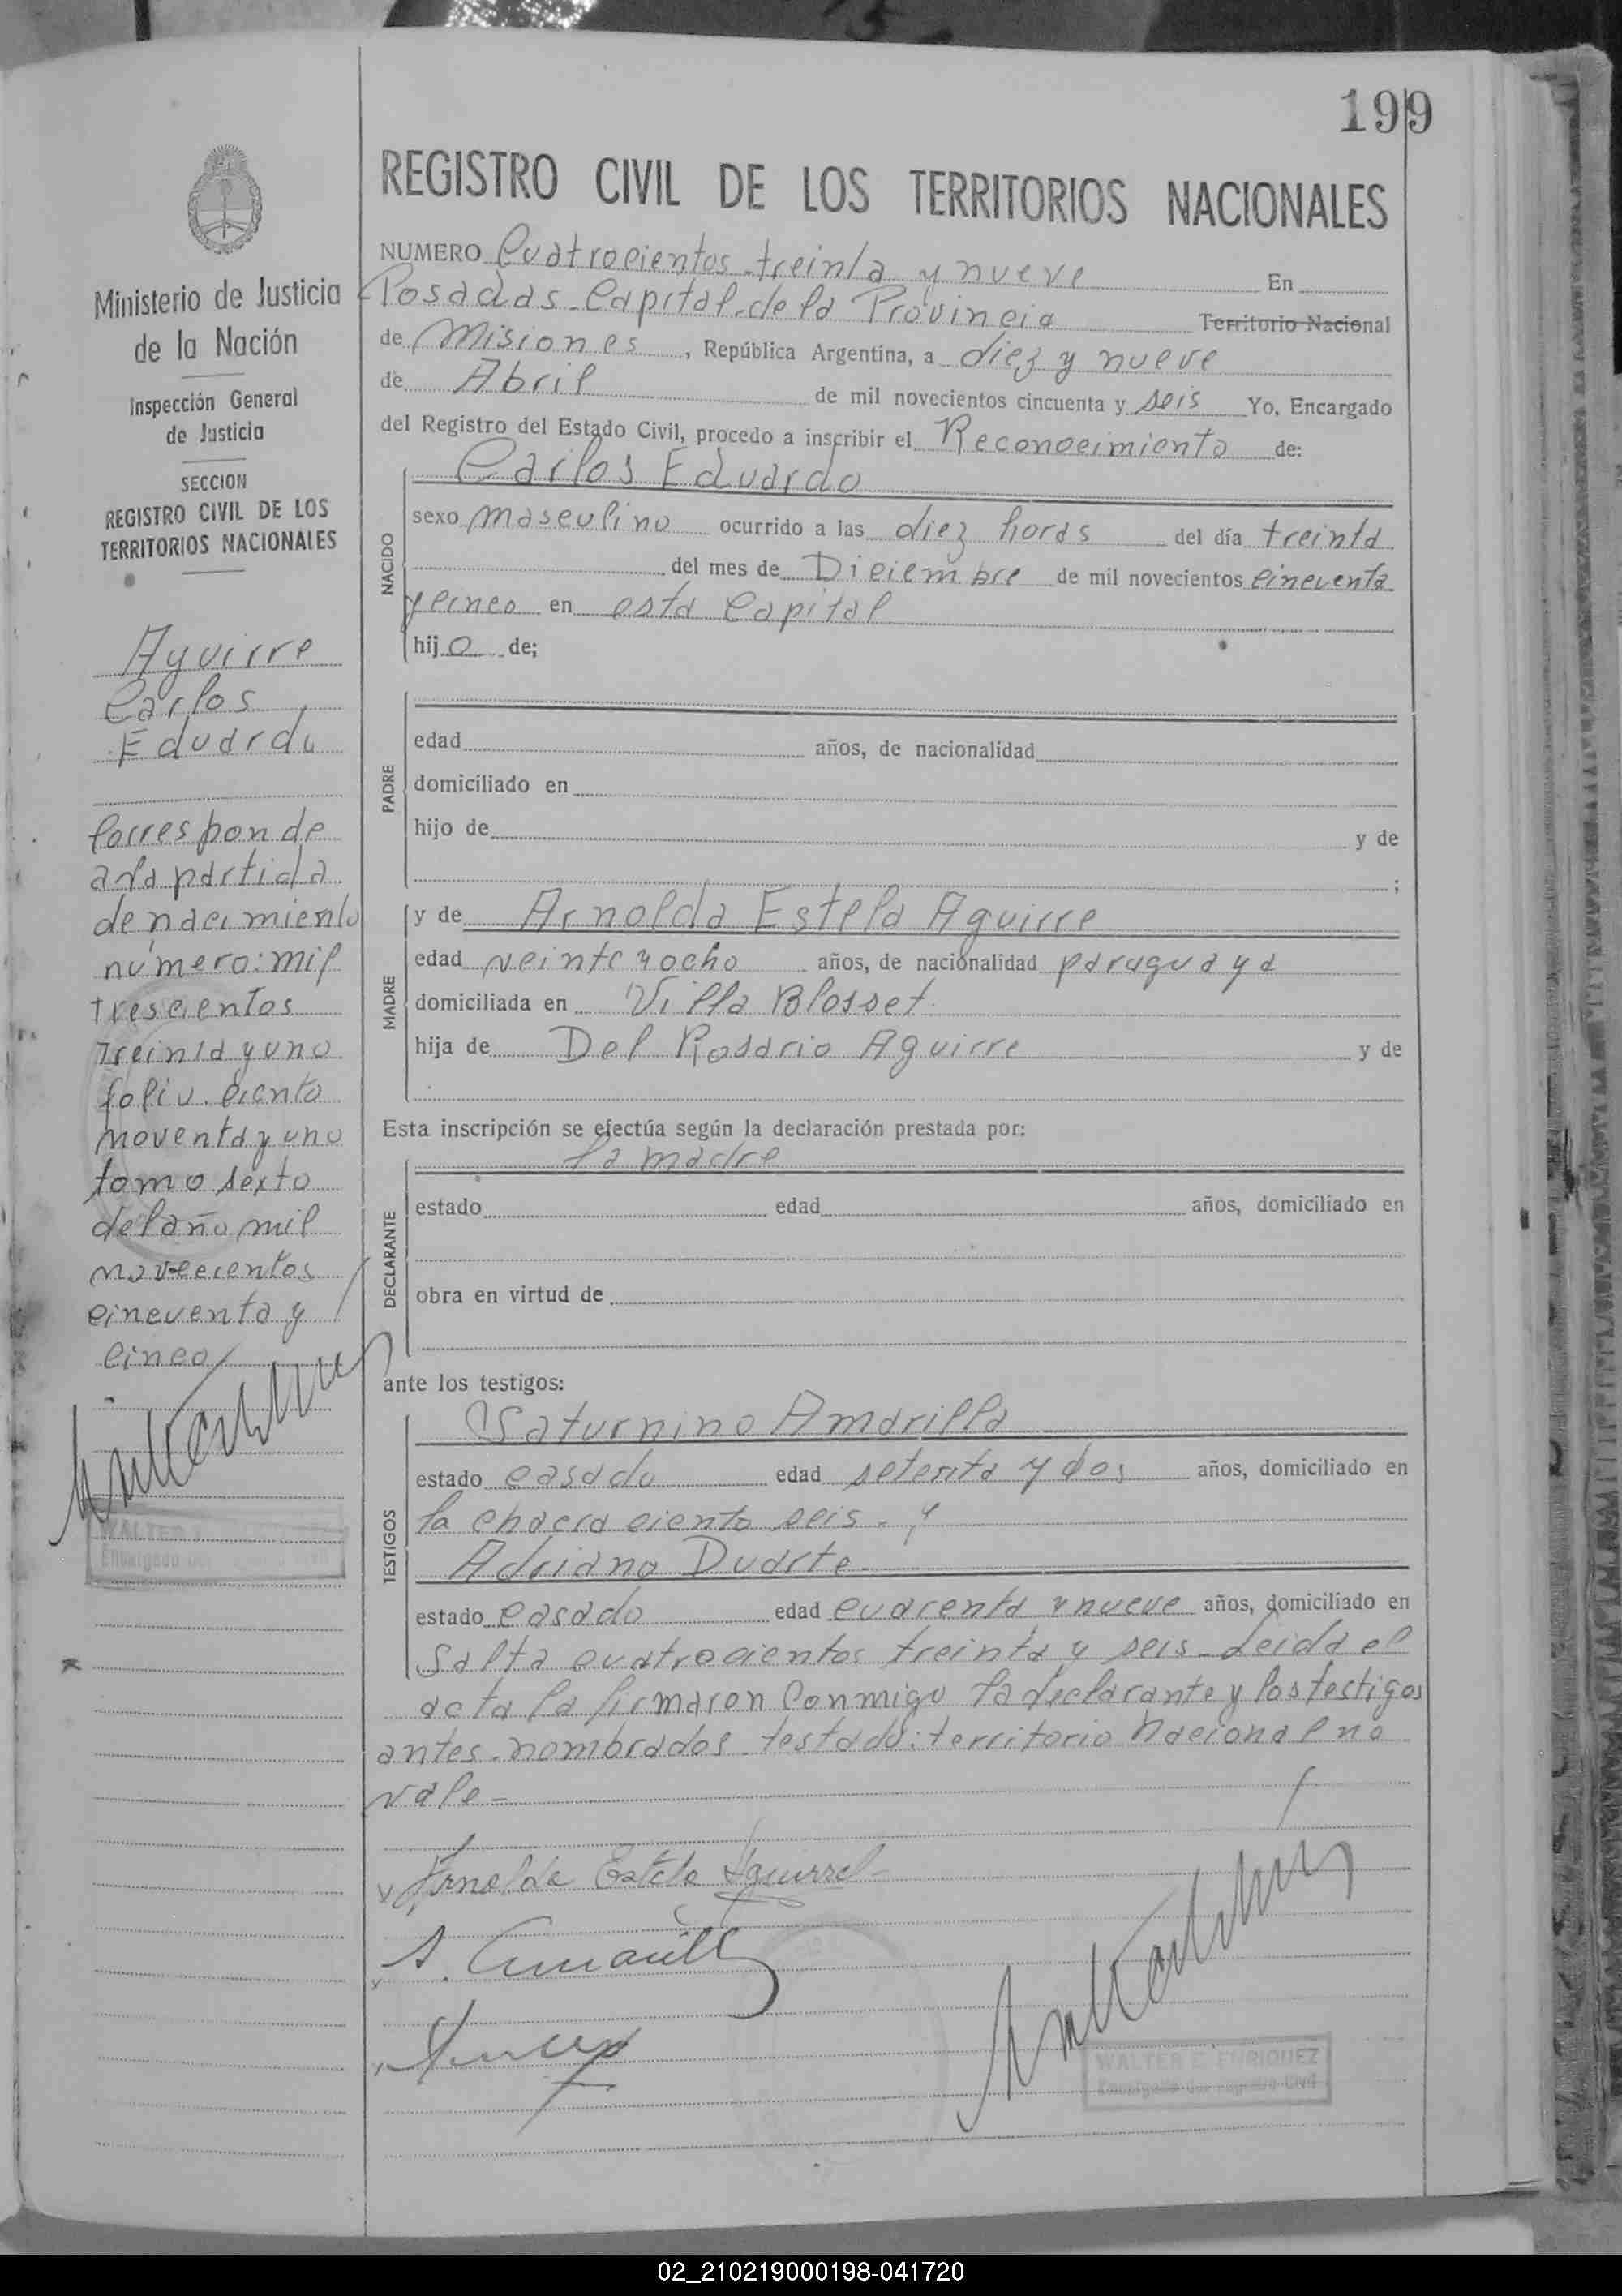 199
REGISTRO CIVIL DE LOS TERRITORIOS NACIONALES
Ministerio de Justicia
de la Nación
Inspección General
de Justicia
SECCION
REGISTRO CIVIL DE LOS
TERRITORIOS NACIONALES
Aguirre
Carlos
Eduardo
Corresponde
a la partida
de nacimiento
número: mil
trescientos
treinta y uno
folio. ciento
noventa y uno
tomo sexto
del año mil
novecientos
cincuenta y
cinco
NUMERO Cuatrocientos treinta y nueve En
Posadas Capital de la Provincia Territorio Nacional
de Misiones, República Argentina, a diez y nueve
de Abril de mil novecientos cincuenta y seis Yo, Encargado
del Registro del Estado Civil, procedo a inscribir el Reconocimiento de:
NACIDO
Carlos Eduardo
sexo masculino ocurrido a las diez horas del día treinta
del mes de Diciembre de mil novecientos cincuenta
y cinco en esta Capital
hijo de;
PADRE
edad años, de nacionalidad
domiciliado en
hijo de y de
;
MADRE
y de Arnolda Estela Aguirre
edad veinte y ocho años, de nacionalidad paraguaya
domiciliada en Villa Blosset
hija de Del Rosario Aguirre y de
Esta inscripción se efectúa según la declaración prestada por:
DECLARANTE
la madre
estado edad años, domiciliado en
obra en virtud de
ante los testigos:
TESTIGOS
Saturnino Amarilla
estado casado edad setenta y dos años, domiciliado en
la chacra ciento seis. y
Adriano Duarte
estado casado edad cuarenta y nueve años, domiciliado en
Salta cuatrocientos treinta y seis. Leida el
acta la firmaron conmigo la declarante y los testigos
antes nombrados testado: territorio nacional no
vale -
Arnolda Estela Aguirre
S. Amarilla
WALTER E. ENRIQUEZ
Encargado del Registro Civil
02_210219000198-041720